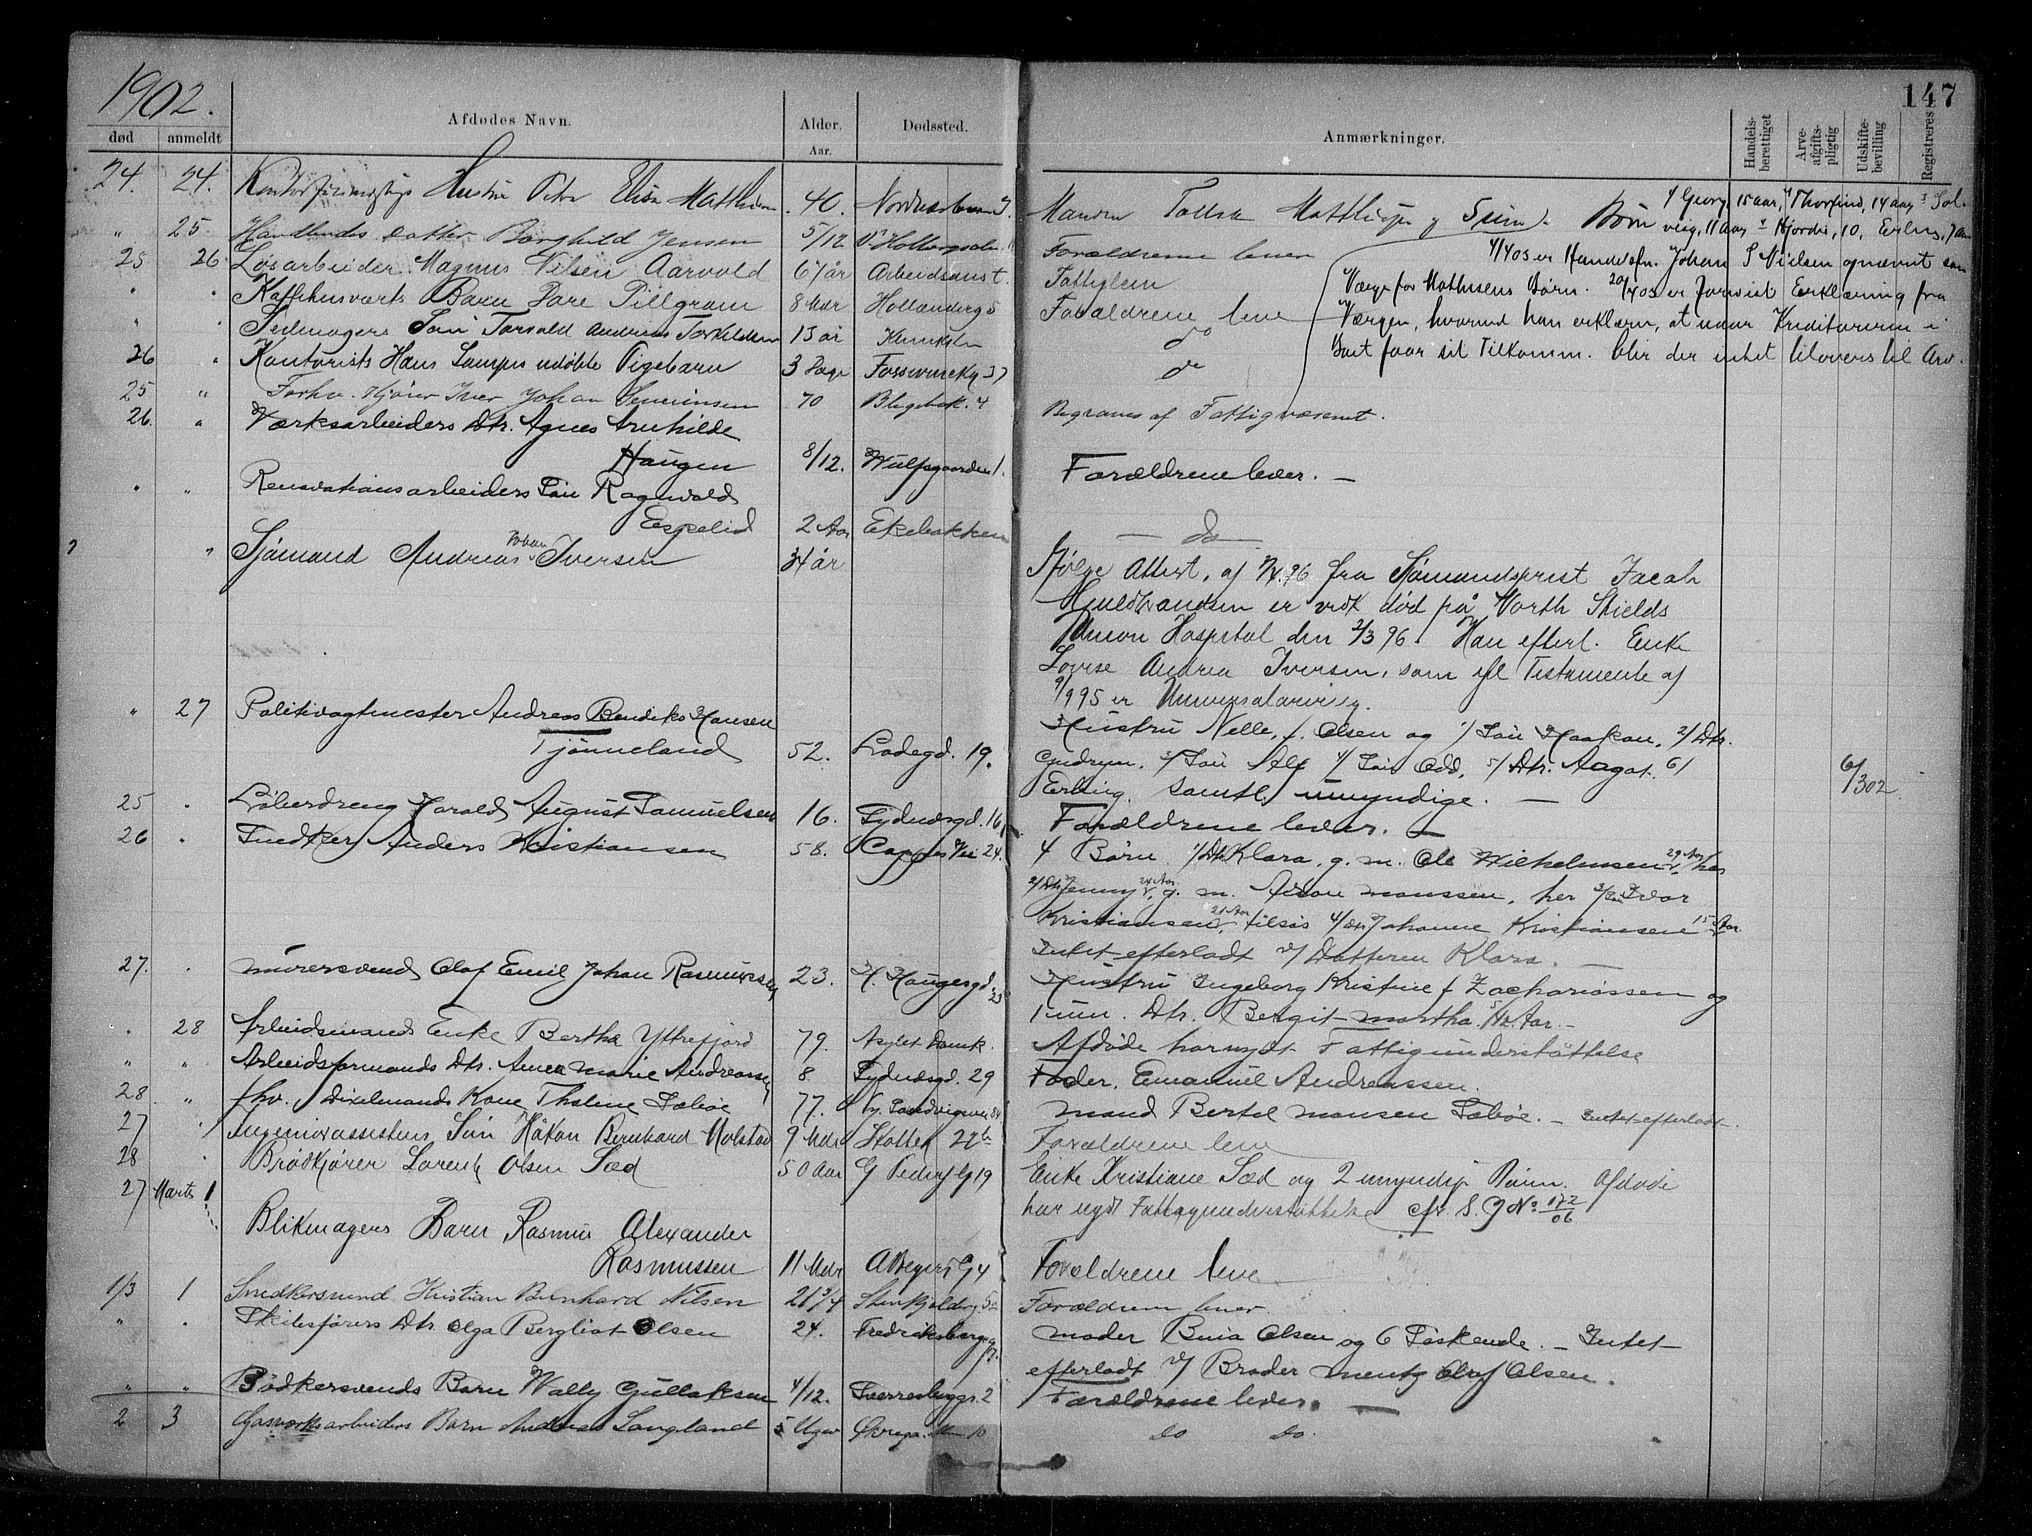 1902.
147
død anmeldt Afdødes Navn. Alder. Aar. Dødssted. Anmærkninger. Handelsberettiget Arveafgiftspligtig Udskiftebevilling Registreres
24. 24. Hustru Petra Elise 40.
Manden Børn 1/ Georg 15 aar, 2/ Thorfind, 14 aar 3 Sol-
veig, 11 aar 4 Hjørdis, 10, Erling, 7 aar
" 25. Handlendes Datter Borghild Jensen 5/12 Forældrene lever
4/4 03 er Johan S Nielsen opnævnt som
25 26 Løsarbeider Magnus Nilsen Aarvold 67 år Arbeidsanst. Fattiglem
Værge for Mathisens Børn. 20/4 03 er Erklæring fra
" " Barn Tare Pillgram 8 Mdr Hollanderg 5 Forældrene leve
Værgen, hvorved han erklærer, at naar Kreditorerne i
" " Søn Torvald Andreas Torkildsen 13 år do
Boet faar sit Tilkomm. blir der intet tilovers til Arv.
26 " Kontorists Hans udøbte Pigebarn 3 Dage 37 do
25 " Forhv. Iver Johan Severinsen 70 4 Begraves af Fattigvæsenet.
26. " Værksarbeiders Dtr. Agnes
Haugen 8/12. Wulfsgaarden 1. Forældrene lever. —
" " Renovationsarbeiders Søn Ragnvald
Espelid 2 Aar Ekebakken — do —
? " Sjømand Andreas Johan Iversen 34 år
Ifølge Attest, af 96 fra Sjømandsprest Jacob
er vedk død på North Shields
Union Hospital den 2/3 96. Han efterl. Enke
Lovise Andrea Iversen, som ifl Testamente af
9/9 95 er Universalarving.
" 27 Politivagtmester Andreas Bendiks Hansen
Hustru Nelle, f. Olsen og 1/ Søn Haakon, 2/ Dtr.
Tjønneland 52. Ladegd. 19.
Gudrun, 3/ Søn Alf 4/ Søn Odd, 5/ Dtr. Aagot, 6/ 6/3 02
Erling, samtl. umyndige. —
25 " Løberdreng Harald August Samuelsen 16. Sydnæsgd. 16 Forældrene lever. —
26 " Snedker Anders Kristiansen 58. Cappes Vei 24.
4 Børn. 1/ Dtr Klara, g. m. Ole Wilhelmsen, 29 Aar her
2/ Dtr Jenny, 24 Aar g. m. Monssen, her 3/ Søn Ivar
Kristiansen, 21 Aar tilsøs 4/ Dtr Johanne Kristiansen 15 Aar.
Intet efterladt v/ Datteren Klara. —
27. " Murersvend Olaf Emil Johan Rasmussen 23. H. Haugesgd. 23
Hustru Ingeborg Kristine f Zachariassen og
1 um. Dtr. Bergit Martha. Aar. —
" 28 Arbeidsmands Enke Bertha Yttrefjord 79. Asylet Danck. Afdøde har nydt Fattigunderstøttelse
" " Arbeidsformands Dtr. Anna Marie Andreassen 8 Sydnæsgd. 29 Fader, Emanuel Andreassen.
28. " fhv. Kone Thaline Sælsøe 77. Ny Sandvigsvei 84 Mand Bertel Monsen Sælsøe. — Intet efterladt.
27 " Ingeniorassistens Søn Håkon Bernhard Molstad 9 Mdr 22b Forældrene leve
28 " Brødkjører Lorentz Olsen Sæd 50 Aar G Peders G 19
Enke Kristiane Sæd og 2 umyndige Børn. Afdøde
27 Marts 1
har nydt Fattigunderstøttelse cfr S. J No 172/06
Blikmagers Barn Rasmus Alexander
Rasmussen 11 Mdr A Meyers G 4 Forældrene leve
1/3 1 Snedkersvend Kristian Bernhard Nilsen 21 3/4 Stenkjelderg 52 Forældrene lever.
" " Skibsførers Dtr. Olga Bergliot Olsen 24. Fredriksbergsg.
Moder Olsen og 6 Søskende. — Intet
efterladt v/ Broder Mentz Olaf Olsen.
" " Bødkersvends Barn Wally Gullaksen 4/12. Sverresborggt. 2 Forældrene lever. —
2 3 Gasværksarbeiders Barn Andrea Langland 5 Uger 10 do do.